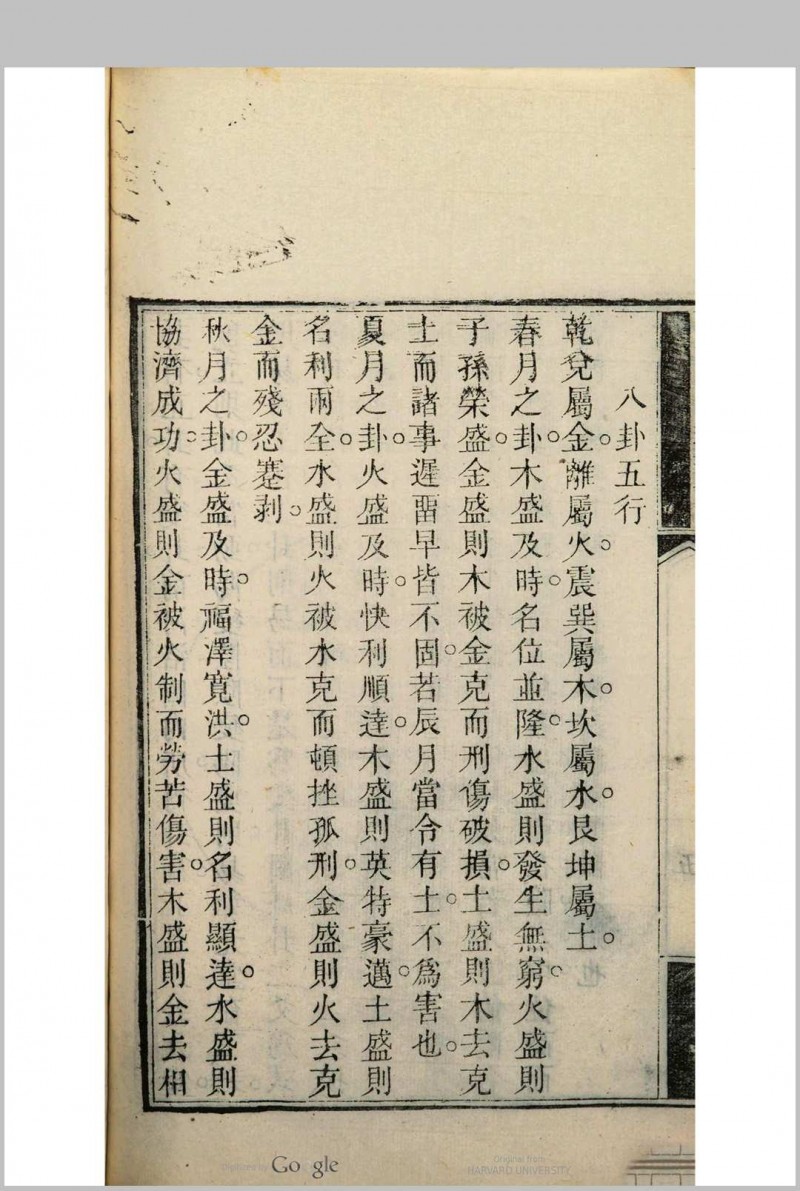 八卦五行
乾兌屬金。離屬火。震巽屬木。坎屬水。艮坤屬土。
春月之卦。木盛及時。名位並隆。水盛則發生無窮。火盛則
子孫榮盛。金盛則木被金克而刑傷破損。土盛則木去克
土而諸事遲畱早皆不固。若辰月當令有土。不爲害也。
夏月之卦。火盛及時。快利順達。木盛則英特豪邁。土盛則
名利兩全。水盛則火被水克而頓挫孤刑。金盛則火去克
金而殘忍蹇剥。
秋月之卦。金盛及時。福澤寛洪。土盛則名利顯達。水盛則
協濟成功。火盛則金被火制而勞苦傷害。木盛則金去相
Google
Original from
HARVARD UNIVERSITY